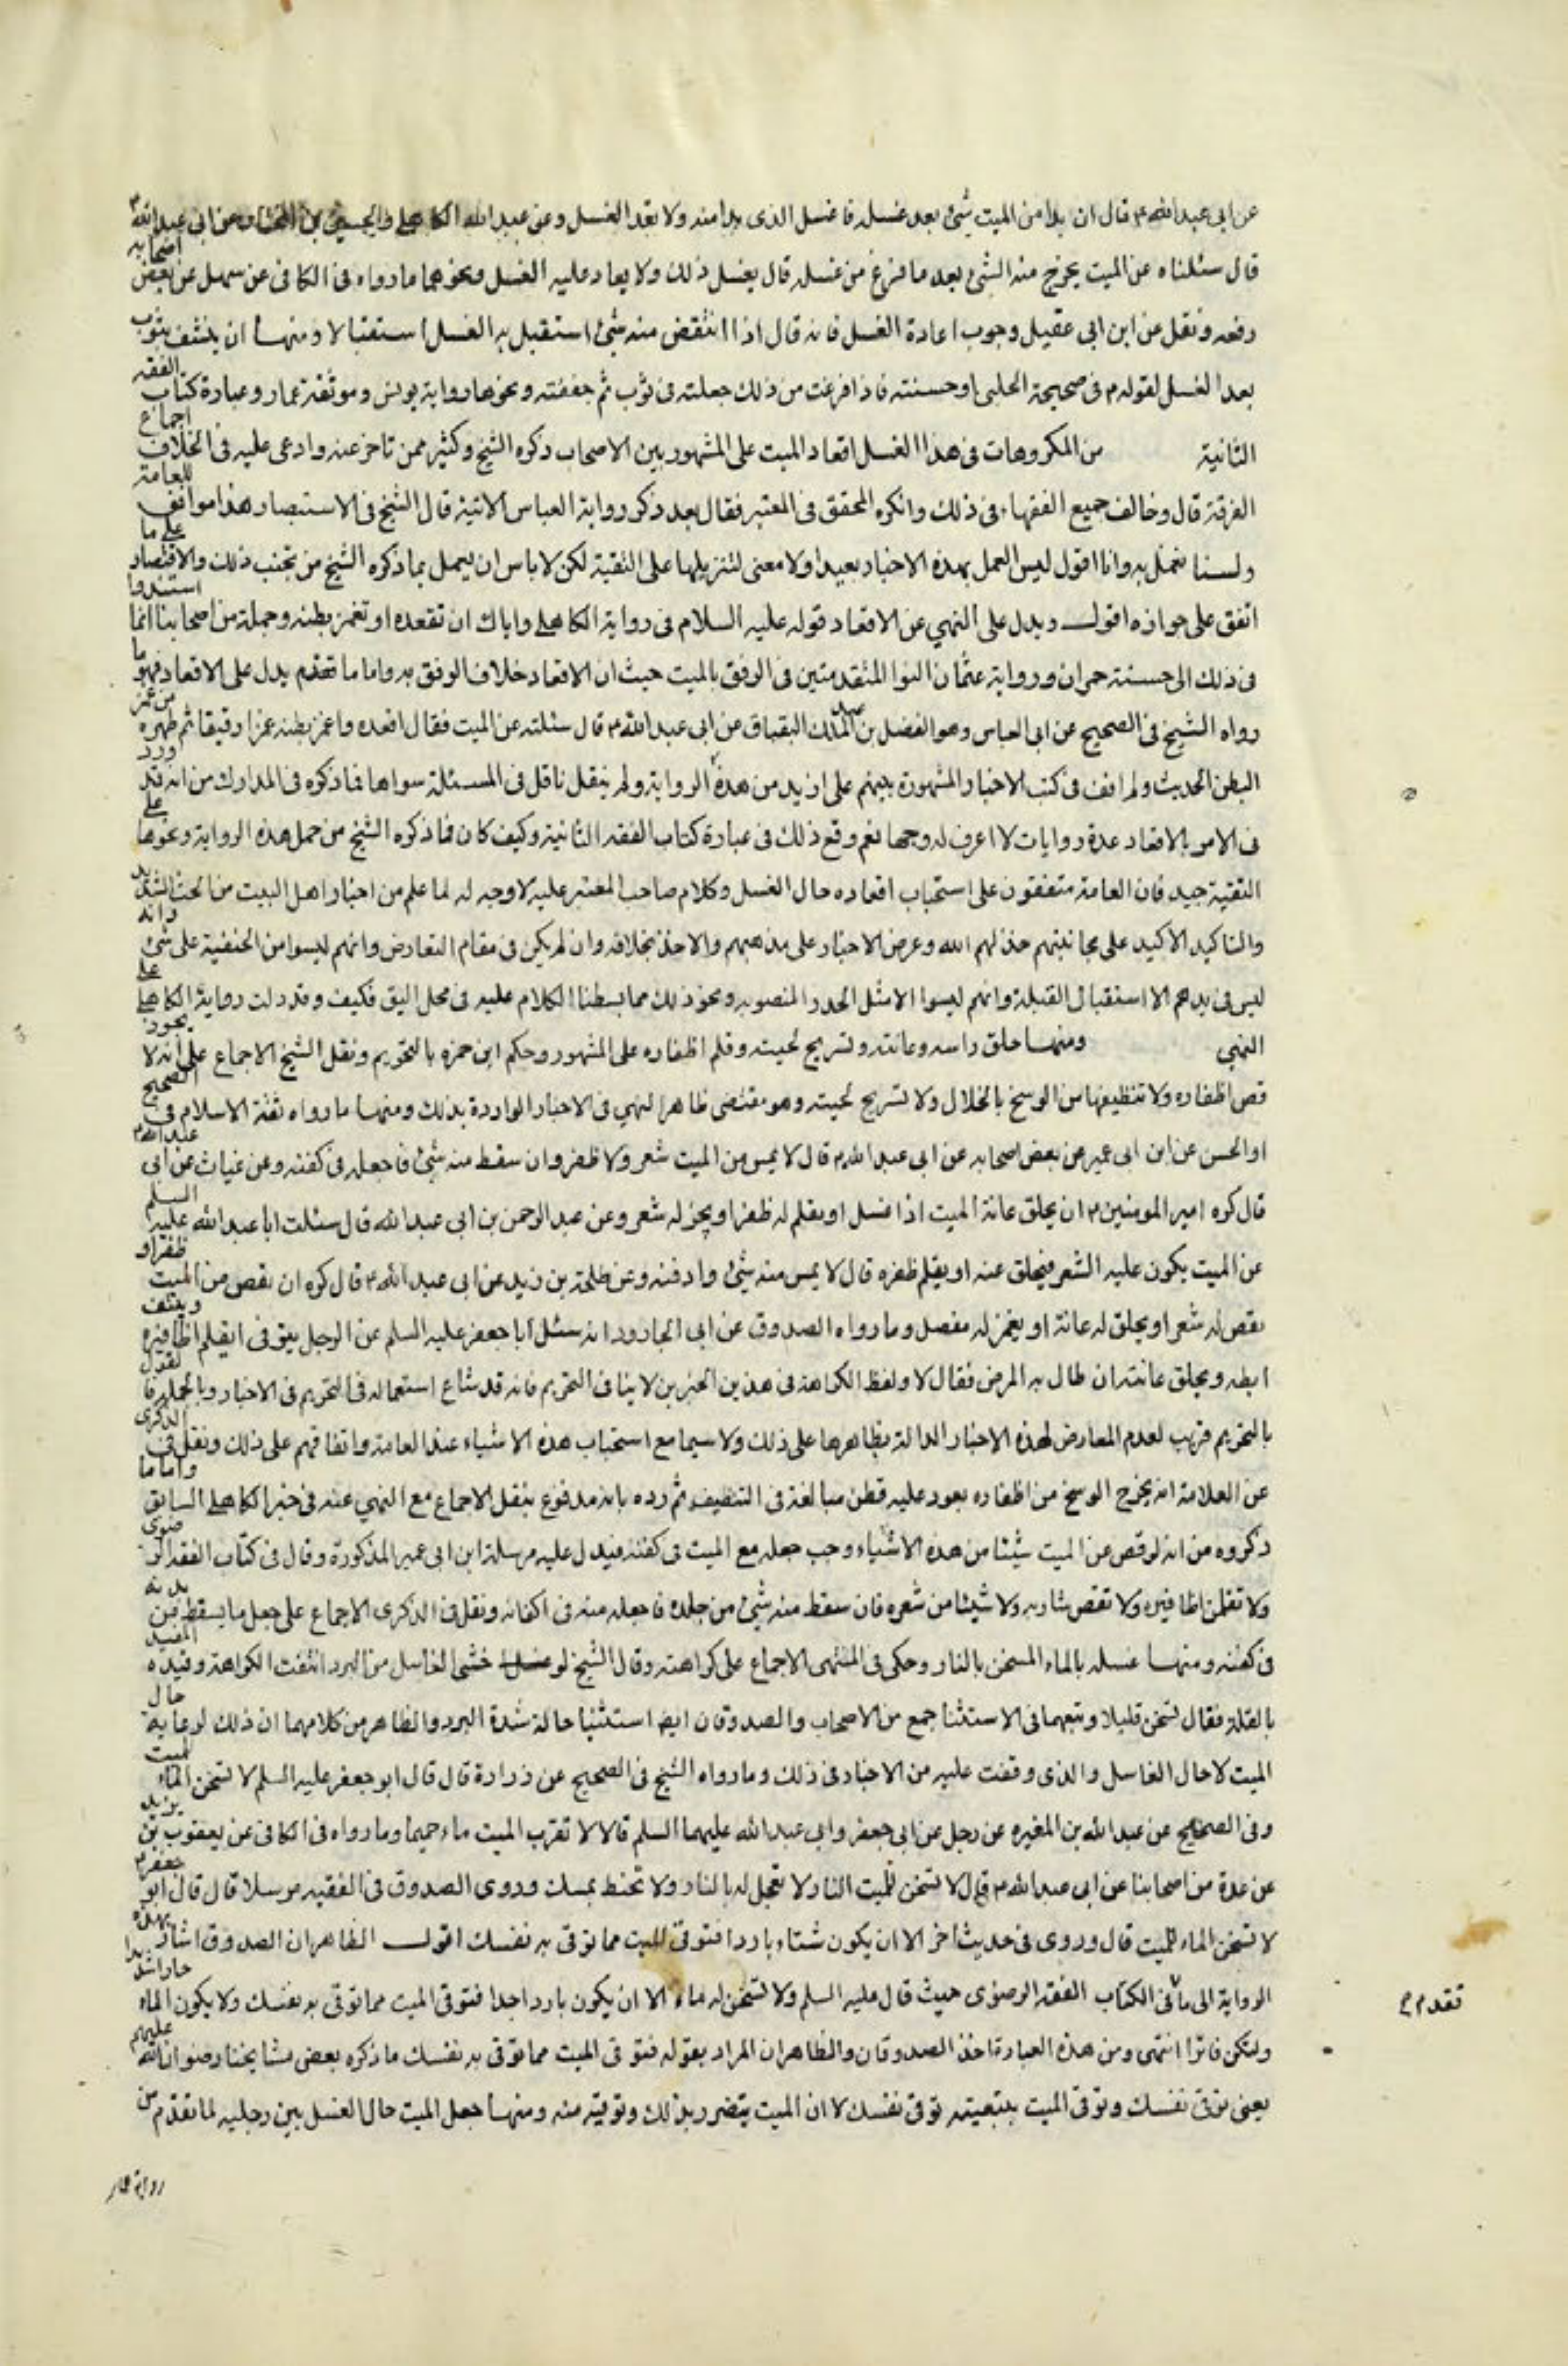 عن ابى عبد الله ع قال ان بدا من الميت شئ بعد غسله فاغسل الذى بدا منه ولا تعد الغسل وعن عبد الله الكاهلى والحسين بن المختار عن ابى عبد الله ع
قال سئلناه عن الميت يخرج منه الشئ بعد ما فرغ من غسله قال يغسل ذلك ولا يعاد عليه الغسل ونحوهما ما رواه فى الكافى عن سهل عن بعض اصحابه
رفعه ونقل عن ابن ابى عقيل وجوب اعادة الغسل فانه قال اذا انتقض منه شئ استقبل به الغسل استقبالا ومنهـا ان ينشف بثوب
بعد الغسل لقوله ع فى صحيحة الحلبى او حسنته فاذا فرغت من ذلك جعلته فى ثوب ثم جففته ونحوها رواية يونس وموثقة عمار وعبارة كتاب الفقه
الثانية من المكروهات فى هذا الغسل اقعاد الميت على المشهور بين الاصحاب ذكره الشيخ وكثير ممن تاخر عنه وادعى عليه فى الخلاف اجماع
الفرقة قال وخالف جميع الفقهاء فى ذلك وانكره المحقق فى المعتبر فقال بعد ذكر رواية العباس الاتية قال الشيخ فى الاستبصار هذا موافق للعامة
ولسنا نعمل به وانا اقول ليس العمل بهذه الاخبار بعيدا ولا معنى لتنزيلها على التقية لكن لا باس ان يعمل بما ذكره الشيخ من تجنب ذلك والاقتصار على ما
اتفق على جوازه اقول ويدل على النهي عن الاقعاد قوله عليه السلام فى رواية الكاهلى واياك ان تقعده او تغمز بطنه وجملة من اصحابنا انما استندوا
فى ذلك الى حسنة حمران ورواية عثمان النوا المتقدمتين فى الرفق بالميت حيث ان الاقعاد خلاف الرفق به واما ما تقدم يدل على الاقعاد فهو ما
رواه الشيخ فى الصحيح عن ابى العباس وهو الفضل بن عبد الملك البقباق عن ابى عبد الله ع قال سئلته عن الميت فقال اقعده واغمز بطنه غمزا رفيقا ثم طهره من غمز
البطن الحديث ولم اقف فى كتب الاخبار المشهورة بينهم على ازيد من هذه الرواية ولم ينقل ناقل فى المسئلة سواها فما ذكره فى المدارك من انه قد ورد
فى الامر بالاقعاد عدة روايات لا اعرف له وجها نعم وقع ذلك فى عبارة كتاب الفقه الثانية وكيف كان فما ذكره الشيخ من حمل هذه الرواية ونحوها على
التقية جيد فان العامة متفقون على استحباب اقعاده حال الغسل وكلام صاحب المعتبر عليه لا وجه له لما علم من اخبار اهل البيت من الحث الشديد
والتاكيد الاكيد على مجانبتهم خذلهم الله وعرض الاخبار على مذهبهم والاخذ بخلافه وان لم يكن فى مقام التعارض وانهم ليسوا من الحنفية على شئ وانه
ليس فى يدهم الا استقبال القبلة وانهم ليسوا الا مثل الجدر المنصوبه ونحو ذلك مما بسطنا الكلام عليه فى محل اليق فكيف وقد دلت رواية الكاهلى على
النهي ومنهـا حلق راسه وعانته وتسريح لحيته وقلم اظفاره على المشهور وحكم ابن حمزه بالتحريم ونقل الشيخ الاجماع على انه لا يجوز
قص اظفاره ولا تنظيفها من الوسخ بالخلال ولا تسريح لحيته وهو مقتضى ظاهر النهي فى الاخبار الواردة بذلك ومنهـا ما رواه ثقة الاسلام فى الصحيح
او الحسن عن ابن ابى عمير عن بعض اصحابه عن ابى عبد الله ع قال لا يمس من الميت شعر ولا ظفر وان سقط منه شئ فاجعله فى كفنه وعن غياث عن ابى عبد الله ع
قال كره امير المومنين ع ان يحلق عانة الميت اذا غسل او يقلم له ظفر او يجز له شعر وعن عبد الرحمن بن ابى عبد الله قال سئلت ابا عبد الله عليه السلم
عن الميت يكون عليه الشعر فيحلق عنه او يقلم ظفره قال لا يمس منه شئ وادفنه وعن طلحة بن زيد عن ابى عبد الله ع قال كره ان يقص من الميت ظفر او
يقص له شعر او يحلق له عانة او يغمز له مفصل وما رواه الصدوق عن ابى الجارود انه سئل ابا جعفر عليه السلم عن الرجل يتوفى ايقلم اظافيره وينتف
ابطه ويحلق عانته ان طال به المرض فقال لا ولفظ الكراهة فى هذين الخبرين لا ينافى التحريم فانه قد شاع استعماله فى التحريم فى الاخبار وبالجملة فالقول
بالتحريم قريب لعدم المعارض لهذه الاخبار الدالة بظاهرها على ذلك ولا سيما مع استحباب هذه الاشياء عند العامة واتفاقهم على ذلك ونقل فى الذكرى
عن العلامة انه يخرج الوسخ من اظفاره بعود عليه قطن مبالغة فى التنظيف ثم رده بانه مدفوع بنقل الاجماع مع النهي عنه فى خبر الكاهلى السابق واما ما
ذكروه من انه لو قص من الميت شيئا من هذه الاشياء وجب جعله مع الميت فى كفنه فيدل عليه مرسلة ابن ابى عمير المذكورة وقال فى كتاب الفقه الرضوى
ولا تقلمن اظافيره ولا تقص شاربه ولا شيئا من شعره فان سقط منه شئ من جلده فاجعله منه فى اكفانه ونقل فى الذكرى الاجماع على جعل ما يسقط من بدنه
فى كفنه ومنهـا غسله بالماء المسخن بالنار وحكى فى المنتهى الاجماع على كراهته وقال الشيخ لو خشى الغاسل من البرد انتفت الكراهة وقيده المفيد
بالقلة فقال تسخن قليلا وتبعهما فى الاستثنا جمع من الاصحاب والصدوقان ايضا استثنيا حالة شدة البرد والظاهر من كلامهما ان ذلك لرعاية حال
الميت لا حال الغاسل والذى وقفت عليه من الاخبار فى ذلك وما رواه الشيخ فى الصحيح عن زرارة قال قال ابو جعفر عليه السلم لا تسخن الماء للميت
وفى الصحيح عن عبد الله بن المغيره عن رجل عن ابى جعفر وابى عبد الله عليهما السلم قالا لا تقرب الميت ماء حميما وما رواه فى الكافى عن يعقوب بن يزيد
عن عدة من اصحابنا عن ابى عبد الله ع قال لا تسخن للميت النار ولا تعجل له بالنار ولا تحنط بمسك وروى الصدوق فى الفقيه مرسلا قال قال ابو جعفر ع
لا تسخن الماء للميت قال وروى فى حديث اخر الا ان يكون شتاء باردا فتوقى للميت مما توقى به نفسك اقول الظاهر ان الصدوق اشار بهذه
الرواية الى ما فى الكتاب الفقه الرضوى حيث قال عليه السلم ولا تسخن له ماء الا ان يكون باردا جدا فتوقى الميت مما توقى به نفسك ولا يكون الماء حارا شديدا
تقدم م
ولتكن فاترا انتهى ومن هذه العبارة اخذ الصدوقان والظاهر ان المراد بقوله فتوقى الميت مما توقى به نفسك ما ذكره بعض مشايخنا رضوان الله عليهم
يعنى توقى نفسك وتوقى الميت بتبعيته توقى نفسك لا ان الميت يتضرر بذلك وتوقيه منه ومنهـا جعل الميت حال الغسل بين رجليه لما تقدم من
رواية عمار